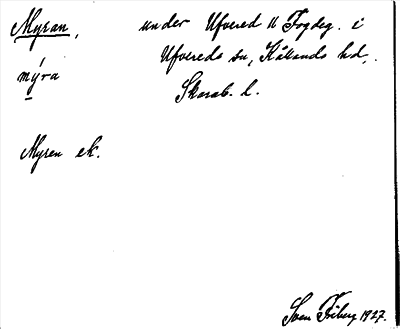 Myran, under Ufvered 11 Fogdeg. i
Ufvereds sn, Kållands hd.,
mýra
Skarab. l.
Myren ek.
Sven Friberg 1927.